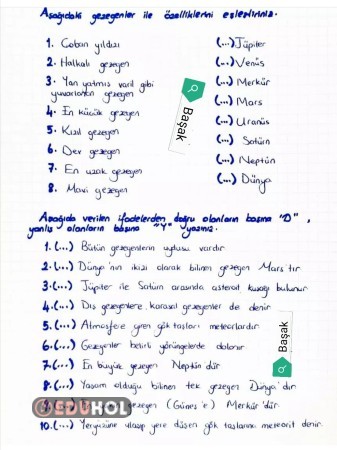 Aşağıdaki gezegenler ile özelliklerini eşleştiriniz.
1. Çoban yıldızı (...) Jüpiter
2. Halkalı gezegen (...) Venüs
3. Yan yatmış varil gibi yuvarlanan gezegen (...) Merkür
4. En küçük gezegen (...) Mars
5. Kızıl gezegen (...) Uranüs
6. Dev gezegen (...) Satürn
7. En uzak gezegen (...) Neptün
8. Mavi gezegen (...) Dünya
Başak
Aşağıda verilen ifadelerden doğru olanların başına "D",
yanlış olanların başına "Y" yazınız.
1. (...) Bütün gezegenlerin uydusu vardır
2. (...) Dünya'nın ikizi olarak bilinen gezegen Mars'tır
3. (...) Jüpiter ile Satürn arasında asteroit kuşağı bulunur
4. (...) Dış gezegenlere karasal gezegenler de denir
5. (...) Atmosfere giren gök taşları meteorlardır
6. (...) Gezegenler belirli yörüngelerde dolanır
7. (...) En büyük gezegen Neptün'dür
8. (...) Yaşam olduğu bilinen tek gezegen Dünya'dır
9. gezegen (Güneş'e) Merkür'dür
10. (...) Yeryüzüne ulaşıp yere düşen gök taşlarına meteorit denir
Başak
EDUHOL